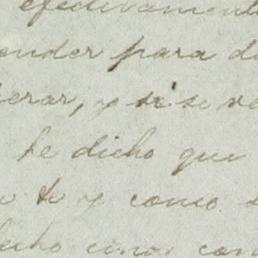 efectivamente
ender para d
erar, y si se ve
he dicho que
te y como
echo